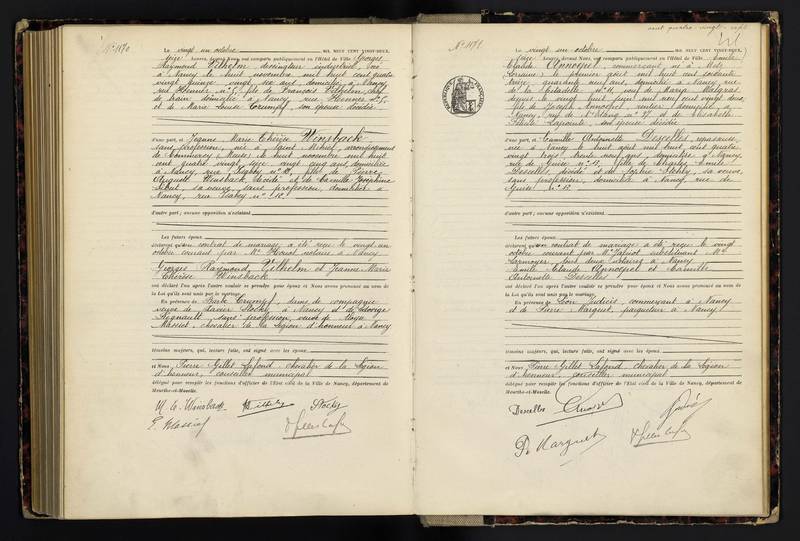 N° 1170
Le vingt un octobre mil neuf cent vingt-deux,
heures, devant Nous, ont comparu publiquement en l'Hôtel de Ville Georges
Raymond Vilhelm dessinateur industriel, né
à Nancy le huit novembre mil huit cent quatre
vingt quinze, vingt six ans, domicilié à Nancy
rue Henner n° 5, fils de François Vilhelm, chef
de train, domicilié à Nancy rue Henner n° 5,
et de Marie Louise Crumpf, son épouse décédée
d'une part, et Jeanne Marie Thérèse Winsback
sans profession, née à Saint Mihiel, arrondissement
de Commercy (Meuse) le huit novembre mil huit
cent quatre vingt seize, vingt cinq ans, domiciliée
à Nancy, rue n° 12, fille de Pierre
Auguste Winsback, décédé et de Camille Joséphine
sa veuve, sans profession, domiciliée à
Nancy, rue n° 12
d'autre part; aucune opposition n'existant
Les futurs époux
déclarent qu'un contrat de mariage a été reçu le vingt un
octobre courant par Me notaire à Nancy
Georges Raymond Vilhelm et Jeanne Marie
Thérèse Winsback
ont déclaré l'un après l'autre vouloir se prendre pour époux et Nous avons prononcé au nom de
la Loi qu'ils sont unis par le mariage.
En présence de Barbe Crumpf, dame de compagnie
veuve de Xavier Stocky à Nancy et de
sans profession, veuve de
Massiet, chevalier de la Légion d'honneur à Nancy
témoins majeurs, qui, lecture faite, ont signé avec les époux
et Nous, Pierre Gillet Lafond, chevalier de la Légion
d'honneur, conseiller municipal
délégué pour remplir les fonctions d'officier de l'Etat civil de la Ville de Nancy, département de
Meurthe-et-Moselle.
M. Th. Winsback Vilhelm Stocky
E. Massiet
N° 1171
Le vingt un octobre mil neuf cent vingt-deux,
heures, devant Nous, ont comparu publiquement en l'Hôtel de Ville Emile
commerçant né à Metz
(Lorraine) le premier août mil huit cent soixante
treize, quarante neuf ans, domicilié à Nancy, rue
de la Citadelle n° 11, veuf de Maria Malgras
depuis le vingt huit juin mil neuf cent vingt deux,
fils de Joseph rentier, domicilié à
Nancy, rue de n° 37 et de Elisabeth
Lapointe, son épouse décédée
d'une part, et Camille Antoinette Descelles, repasseuse,
née à Nancy le huit août mil huit cent quatre
vingt trois, trente neuf ans, domiciliée à Nancy,
rue de Guise n° 12, fille de Charles Emile
Descelles, décédé et de Sophie sa veuve,
sans profession, domiciliée à Nancy rue de
Guise n° 12
d'autre part; aucune opposition n'existant
Les futurs époux
déclarent qu'un contrat de mariage a été reçu le vingt
octobre courant par Me substituant Me
tous deux notaires à Nancy
Emile et Camille
Antoinette Descelles
ont déclaré l'un après l'autre vouloir se prendre pour époux et Nous avons prononcé au nom de
la Loi qu'ils sont unis par le mariage.
En présence de Léon commerçant à Nancy
et de Pierre Marguet, parqueteur à Nancy
témoins majeurs, qui, lecture faite, ont signé avec les époux
et Nous, Pierre Gillet Lafond, chevalier de la Légion
d'honneur, conseiller municipal
délégué pour remplir les fonctions d'officier de l'Etat civil de la Ville de Nancy, département de
Meurthe-et-Moselle.
Descelles
P. Marguet